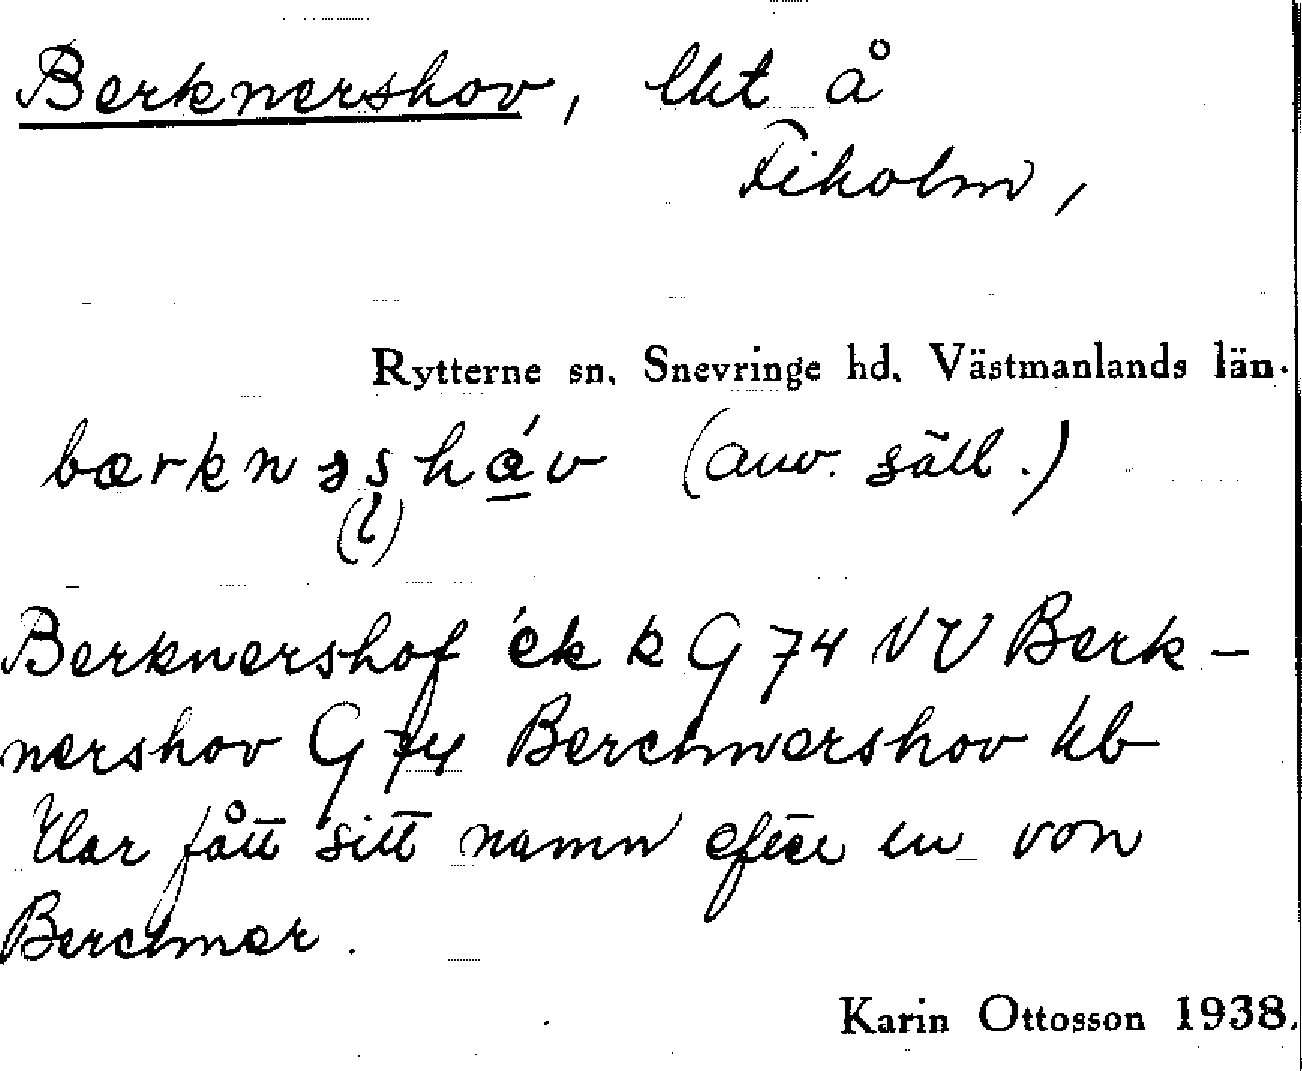 Berknershov, lht å
Fiholm,
Rytterne sn. Snevringe hd. Västmanlands län.
bærknəsháv (anv. säll.)
Berknershof ek k G 74 NV Berk-
nershov G 74 Berchnershov kb
Har fått sitt namn efter en von
Berchner.
Karin Ottosson 1938.